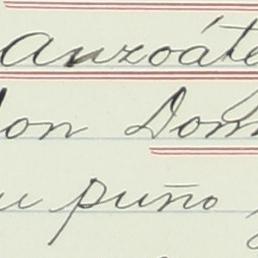 Anzoáte
don Dom
u puño y